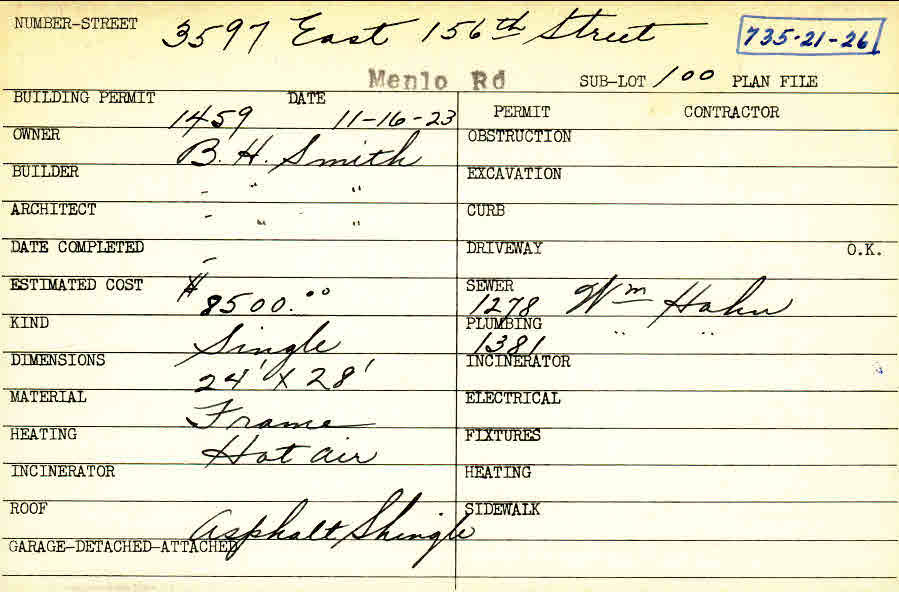 NUMBER-STREET 3597 East 156th Street 735-21-26
Menlo Rd SUB-LOT 100 PLAN FILE
BUILDING PERMIT 1459 DATE 11-16-23
OWNER B. H. Smith
BUILDER - " "
ARCHITECT - " "
DATE COMPLETED -
ESTIMATED COST $8500.00
KIND Single
DIMENSIONS 24' X 28'
MATERIAL Frame
HEATING Hot air
INCINERATOR
ROOF Asphalt Shingle
GARAGE-DETACHED-ATTACHED
PERMIT CONTRACTOR
OBSTRUCTION
EXCAVATION
CURB
DRIVEWAY O.K.
SEWER 1278 Wm Hahn
PLUMBING 1381 " "
INCINERATOR
ELECTRICAL
FIXTURES
HEATING
SIDEWALK